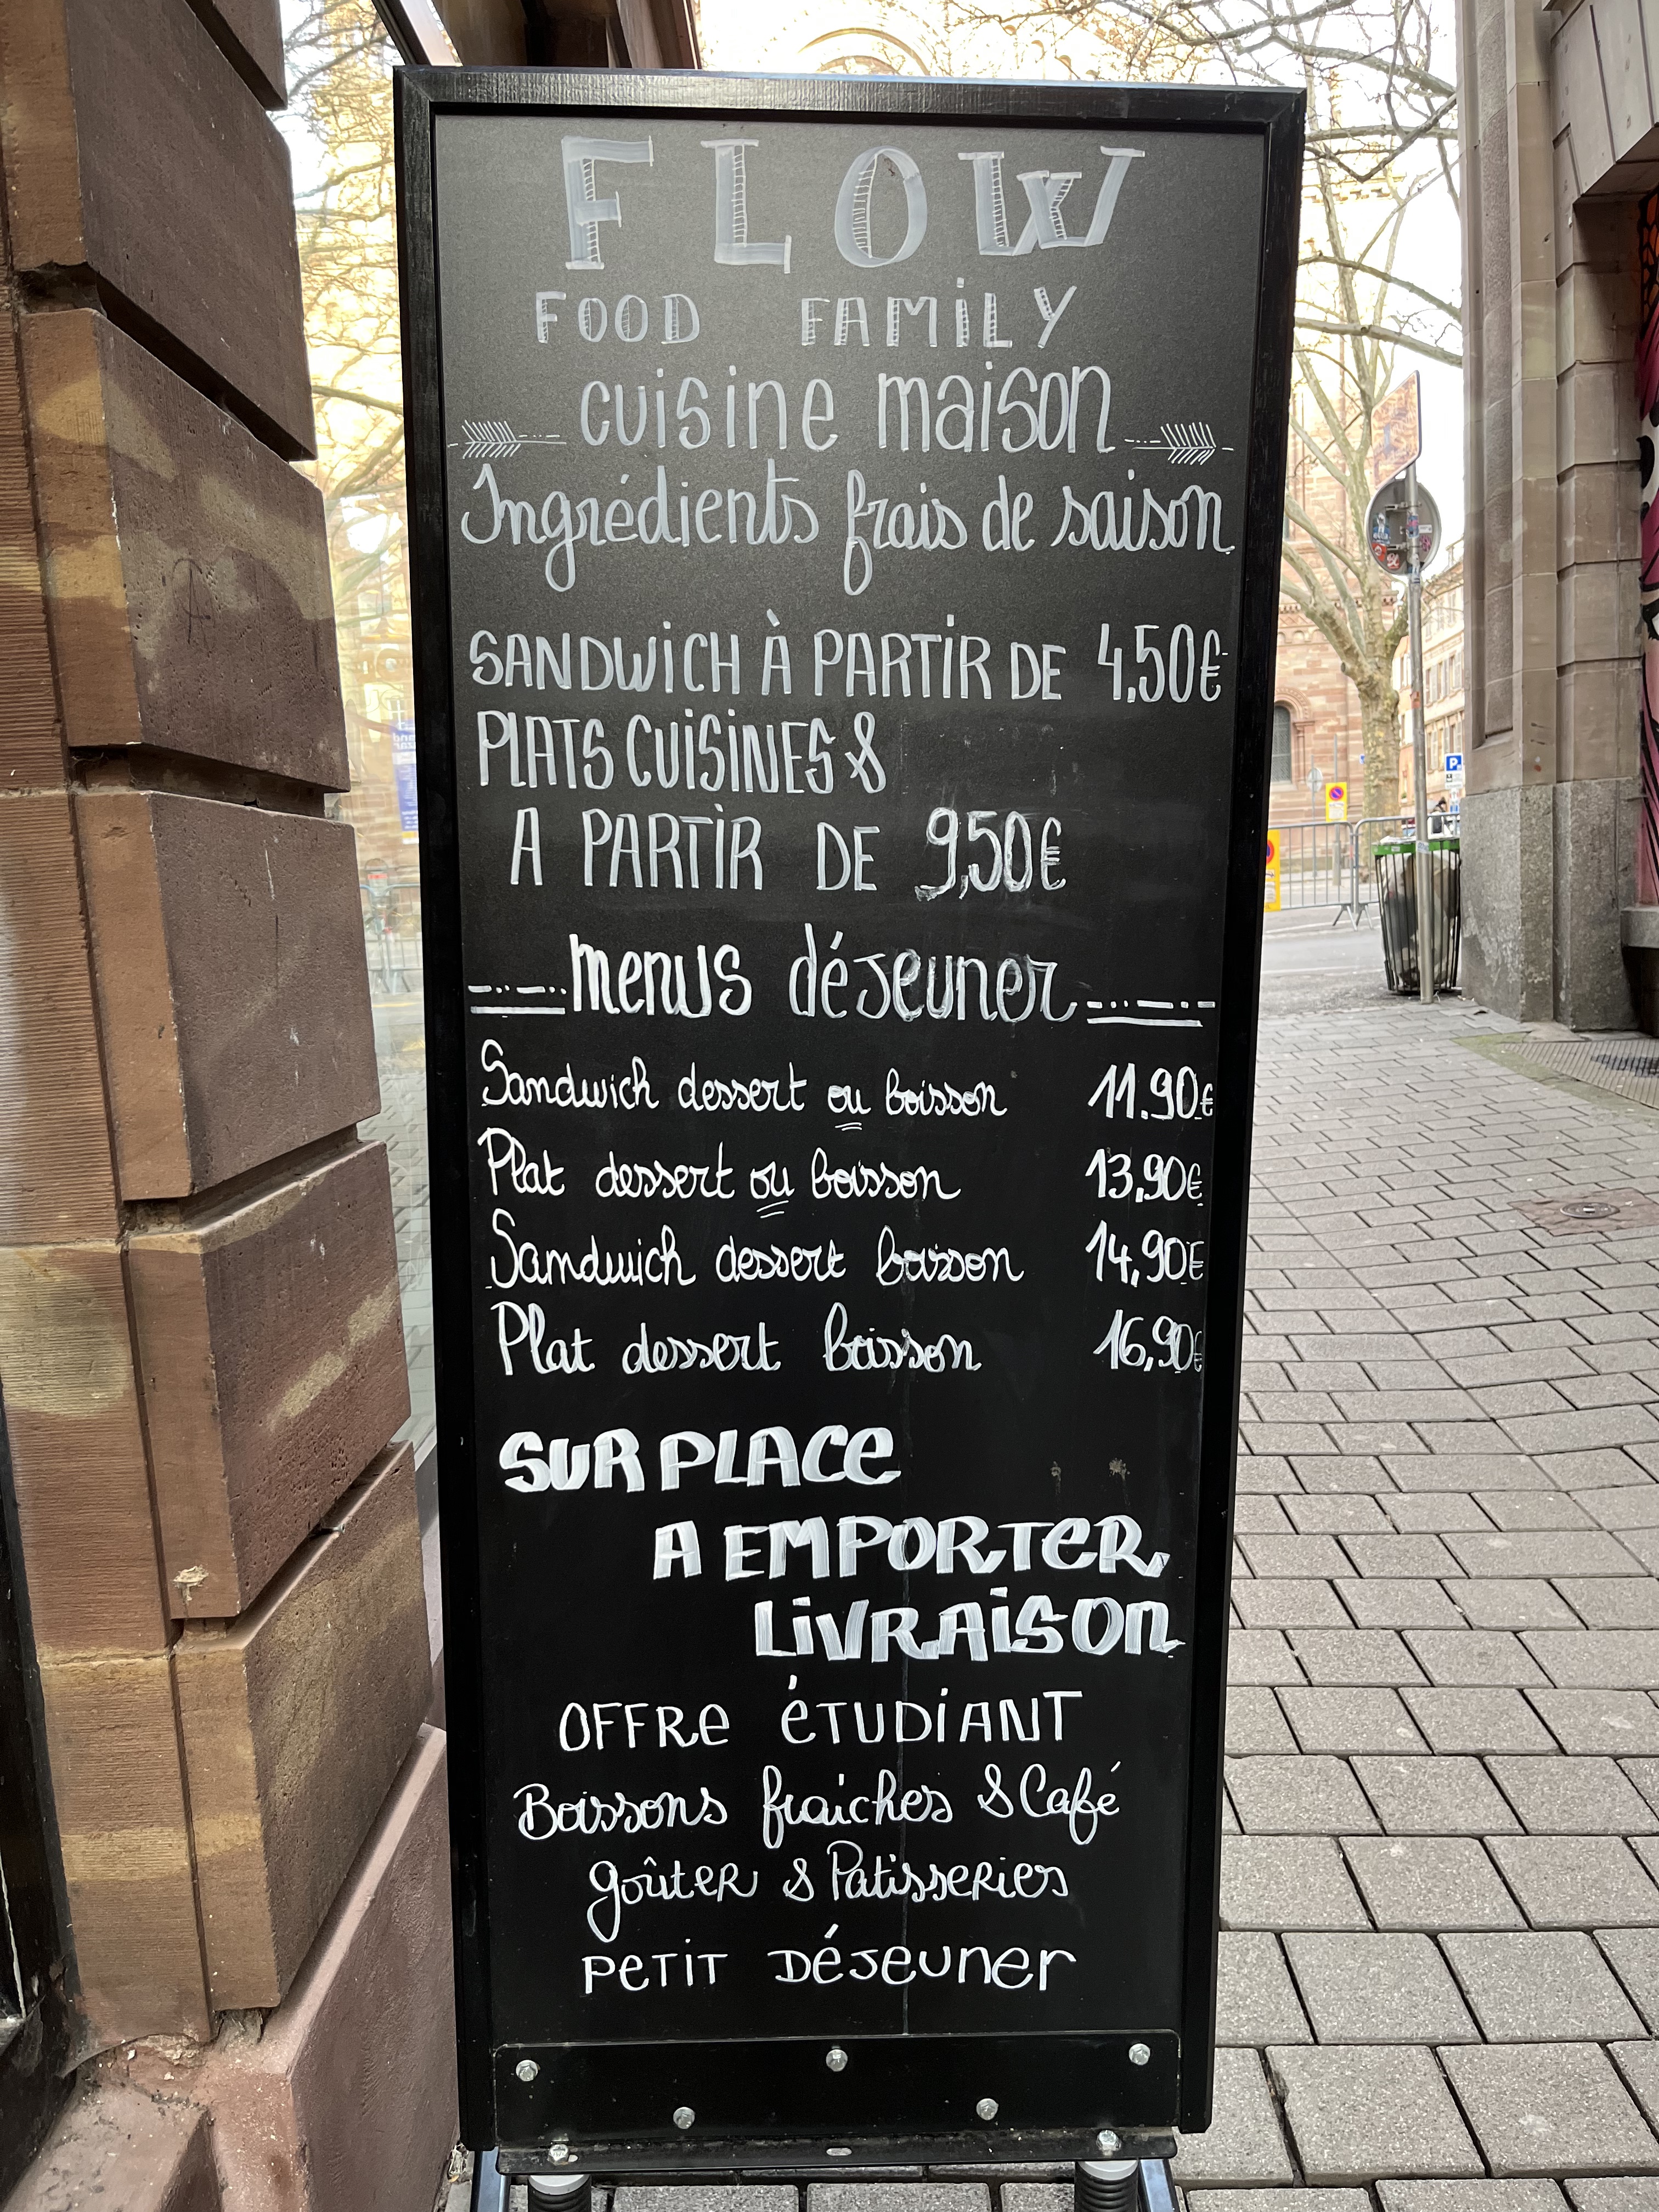 FLOW
FOOD FAMILY
cuisine maison
Ingrédients frais de saison
SANDWICH À PARTIR DE 4,50€
PLATS CUISINES &
A PARTIR DE 9,50€
menus déjeuner
Sandwich dessert ou boisson 11.90€
Plat dessert ou boisson 13,90€
Sandwich dessert boisson 14,90€
Plat dessert boisson 16,90€
SUR PLACE
A EMPORTER
LIVRAISON
OFFRE ÉTUDIANT
Boissons fraiches & Café
goûter & Patisseries
PETIT DÉJEUNER